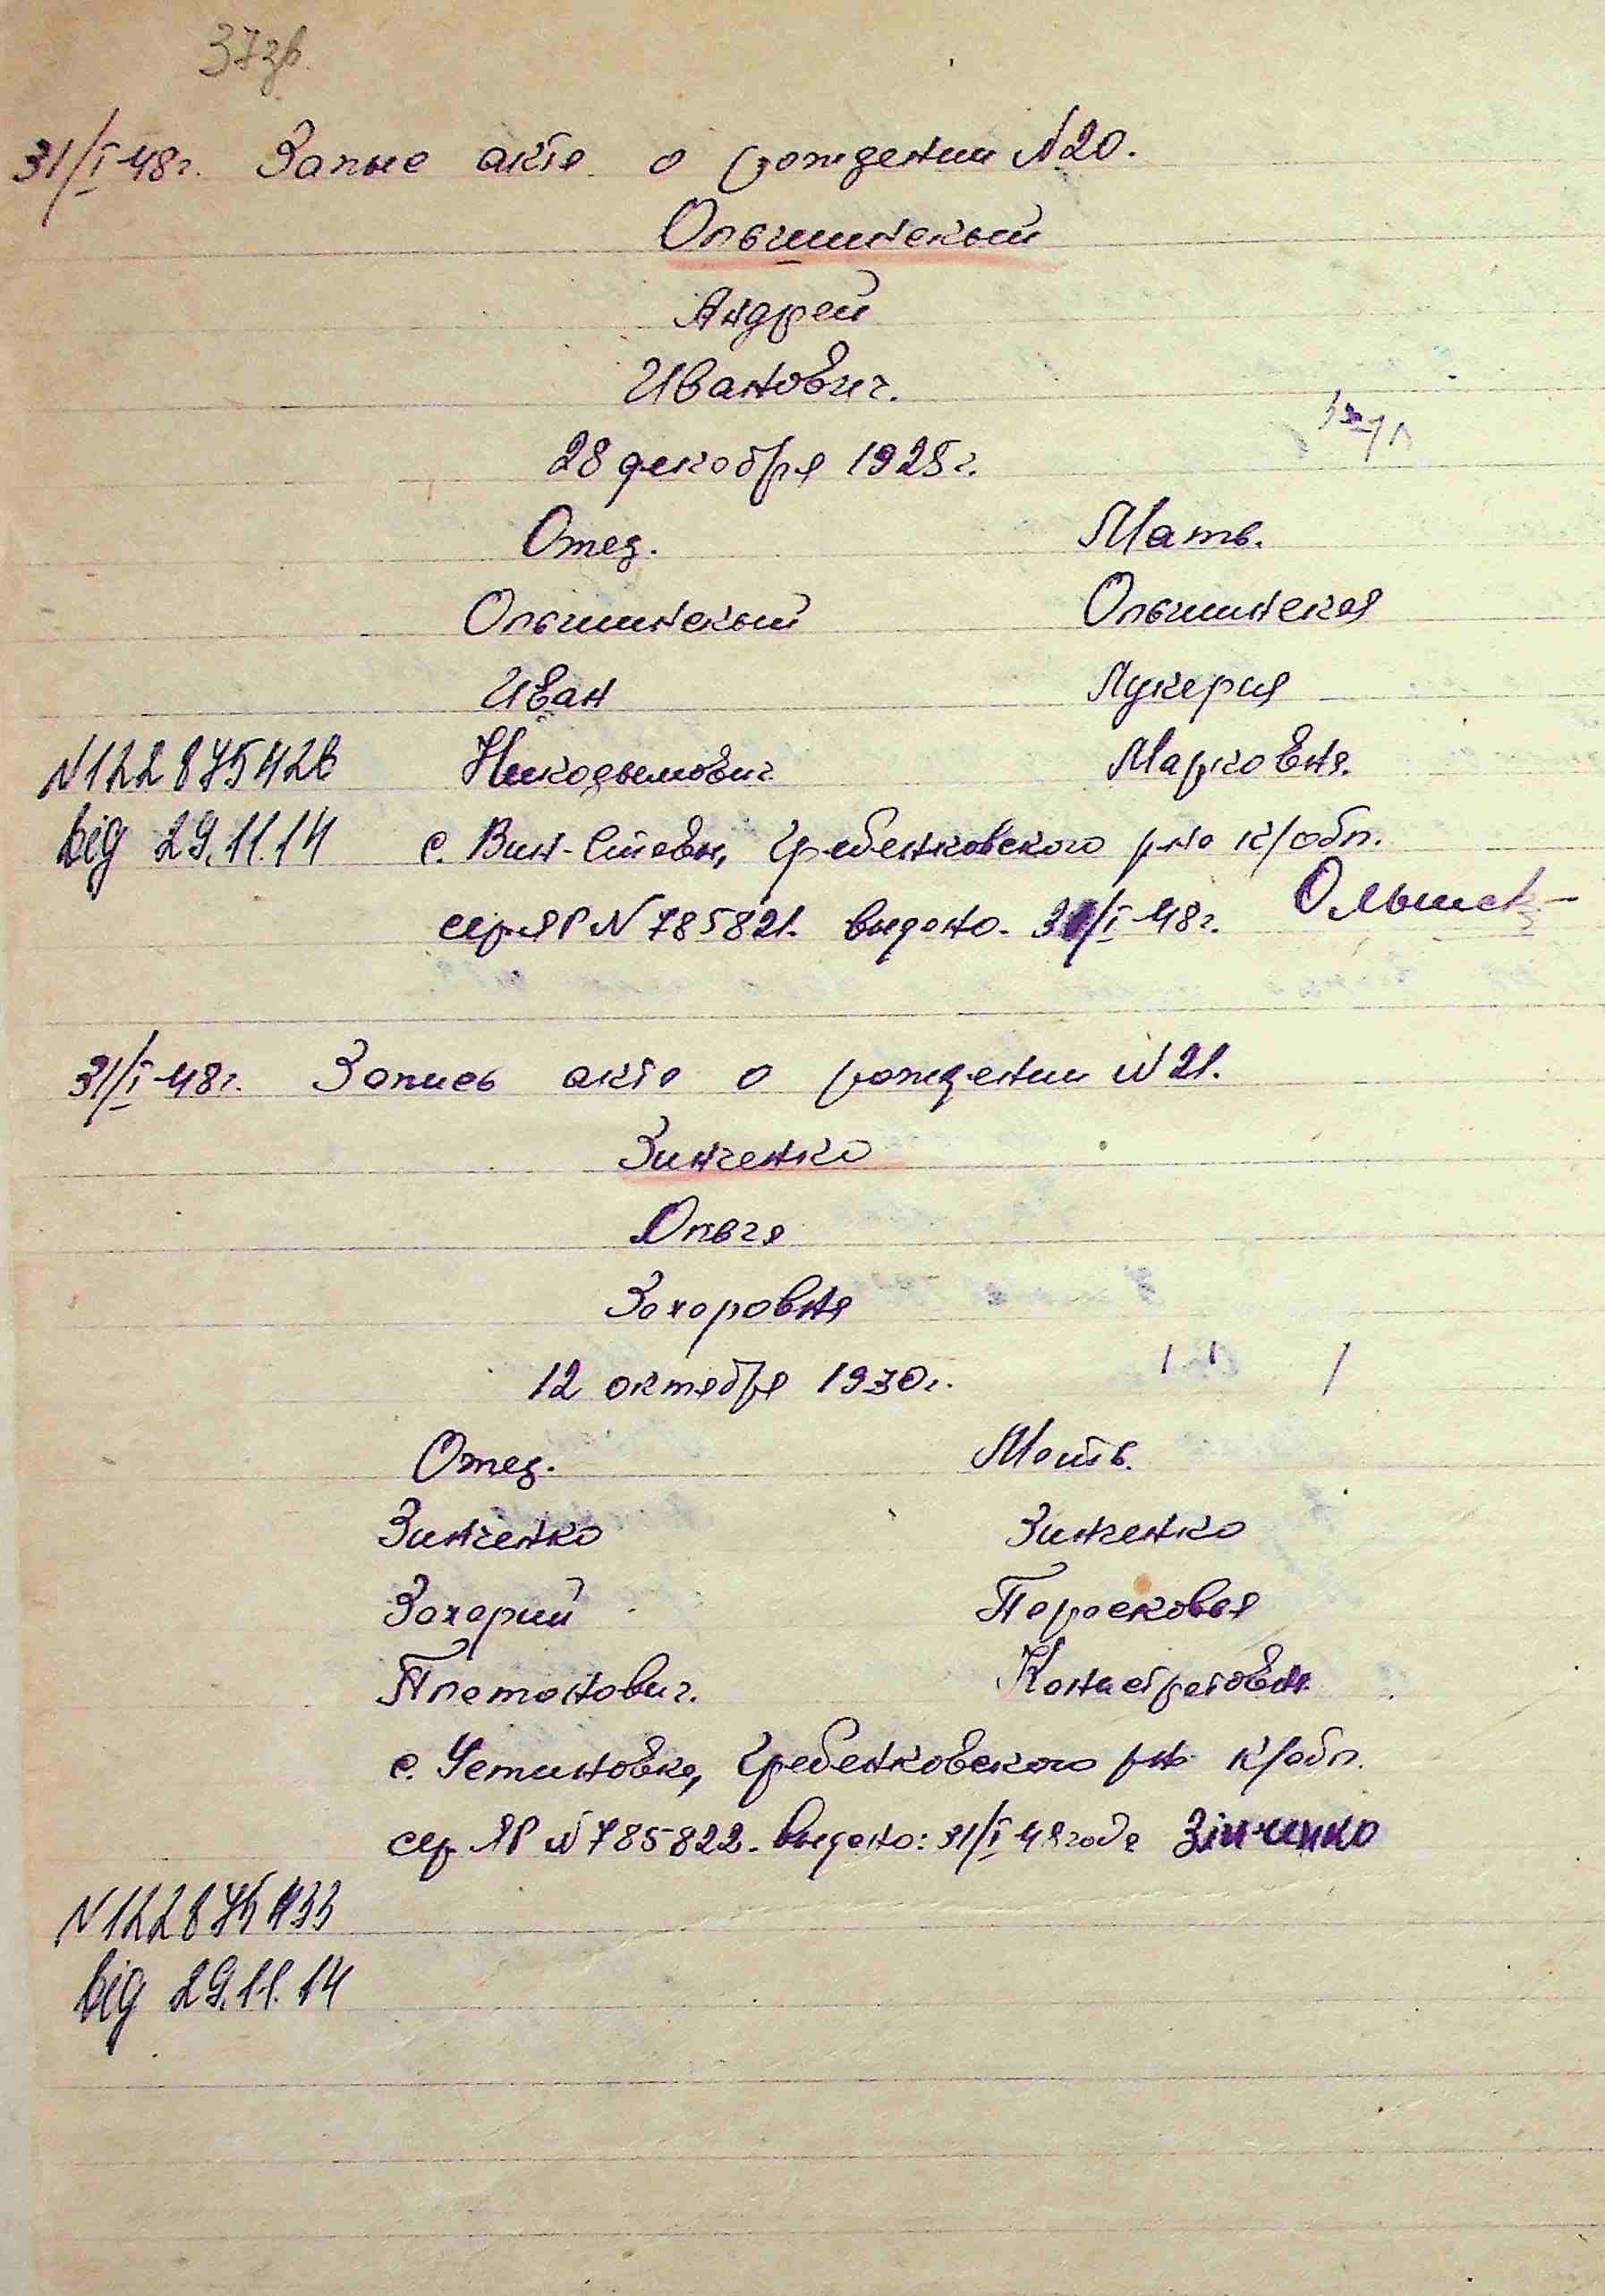 37зв.
31/I-48г. Запись акта о рождении №20.
Ольшинский
Андрей
Иванович.
28 декабря 1925г.
Отец. Мать.
Ольшинский Ольшинская
Иван Лукерия
№122875426 Никодымович Марковна.
від 29.11.14 с. Вин-Ставы, Гребенковского р-на К/обл.
сер.ЯР № 785821. видано. 31/I-48г.
31/I-48г. Запись акта о рождении №21.
Зинченко
Ольга
Захаровна
12 октября 1930г.
Отец. Мать.
Зинченко Зинченко
Захарий Парасковья
Платонович. Калистратовна
с. Устиновка, Гребенковского р-на К/обл.
сер. ЯР №785822. видано: 31/I-48года Зінченко
№122875433
від 29.11.14